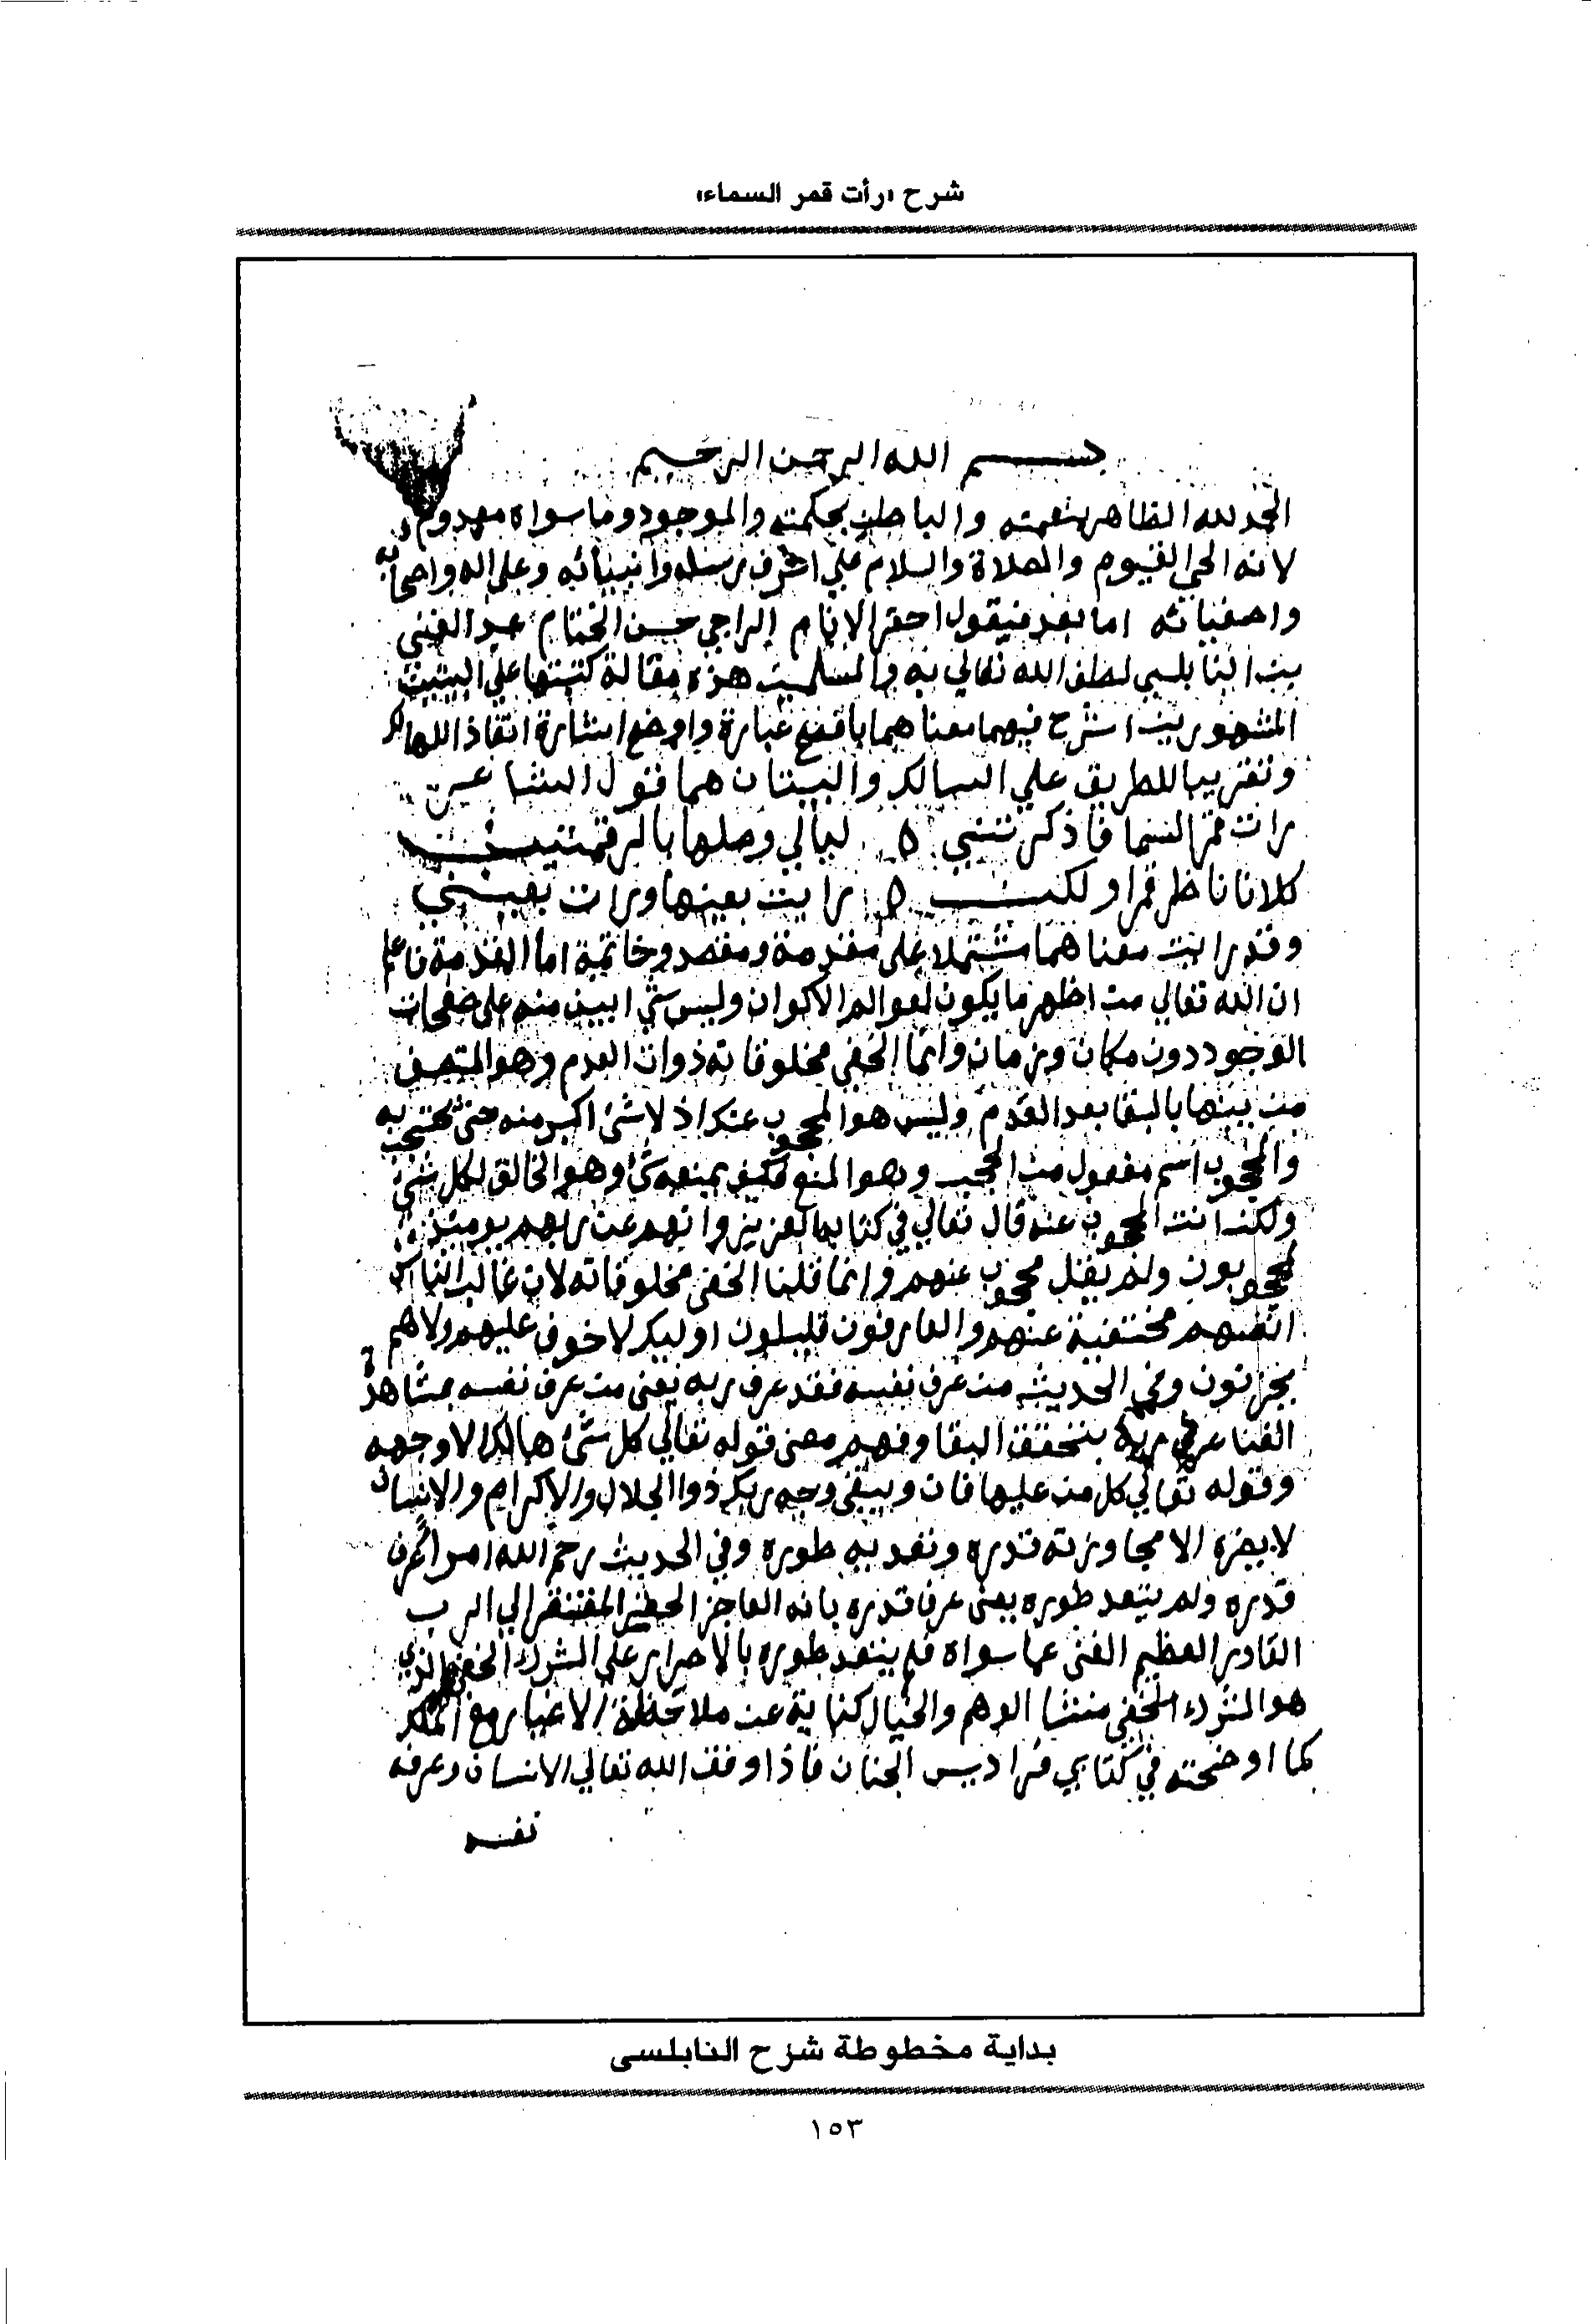 شرح «رأت قمر السماء»
بسم الله الرحمن الرحيم
الحمد لله الظاهر بنعمته والباطن بحكمته والموجود وما سواه معدوم
لانه الحي القيوم والصلاة والسلام علي اشرف رسله وانبيائه وعلى اله واصحابه
واصفيائه اما بعد فيقول احقر الانام الراجي حسن الختام عبد الغني
بن النابلسي لطف الله تعالي به والمسلمين هذه مقالة كتبتها علي البيتين
المشهورين اشرح فيهما معناهما بافصح عبارة واوضح اشارة انقاذا للهالك
وتقريبا للطريق علي السالك والبيتان هما قول الشاعر
رات قمر السما فاذكرتني ليالي وصلها بالرقمتين
كلانا ناظر قمرا ولكن رايت بعينها ورات بعيني
وقد رايت معناهما مشتملا على مقدمة ومقصد وخاتمة اما المقدمة فاعلم
ان الله تعالي من اظهر ما يكون لعوالم الاكوان وليس شي ابين منه على صفحات
الوجود دون مكان وزمان وانما الخفي مخلوقاته ذوات العدم وهو المتصف
من بينها بالبقا بعد القدم وليس هو المحجوب عنك اذ لا شئ اكبر منه حتى يحتجب به
والمحجوب اسم مفعول من الحجب وهو المنع فكيف يمنعه شئ وهو الخالق لكل شئ
ولكن انت المحجوب عنه قال تعالي في كتابه العزيز وانهم عن ربهم يومئذ
لمحجوبون ولم يقل محجوب عنهم وانما قلنا الخفى مخلوقاته لان غالب الناس
انفسهم مختفية عنهم والعارفون قليلون اوليك لا خوف عليهم ولا هم
يحزنون وفي الحديث من عرف نفسه فقد عرف ربه يعنى من عرف نفسه بمشاهدة
الفنا عرف ربه بتحقق البقا وفهم معنى قوله تعالي كل شئ هالك الا وجهه
وقوله تعالي كل من عليها فان ويبقى وجه ربك ذو الجلال والاكرام والانسان
لا يضره الا مجاوزته قدره وتعديه طوره وفي الحديث رحم الله امرا عرف
قدره ولم يتعد طوره يعنى عرف قدره بانه العاجز الحقير المفتقر الي الرب
القادر العظيم الغنى عما سواه فلم يتعد طوره بالاصرار على الشرك الخفي الذي
هو الشرك الخفي منشا الوهم والخيال كناية عن ملاحظة الاغيار مع الملك
كما اوضحته في كتابي فراديس الجنان فاذا وفق الله تعالي الانسان وعرفه
نفسه
بداية مخطوطة شرح النابلسى
١٥٣